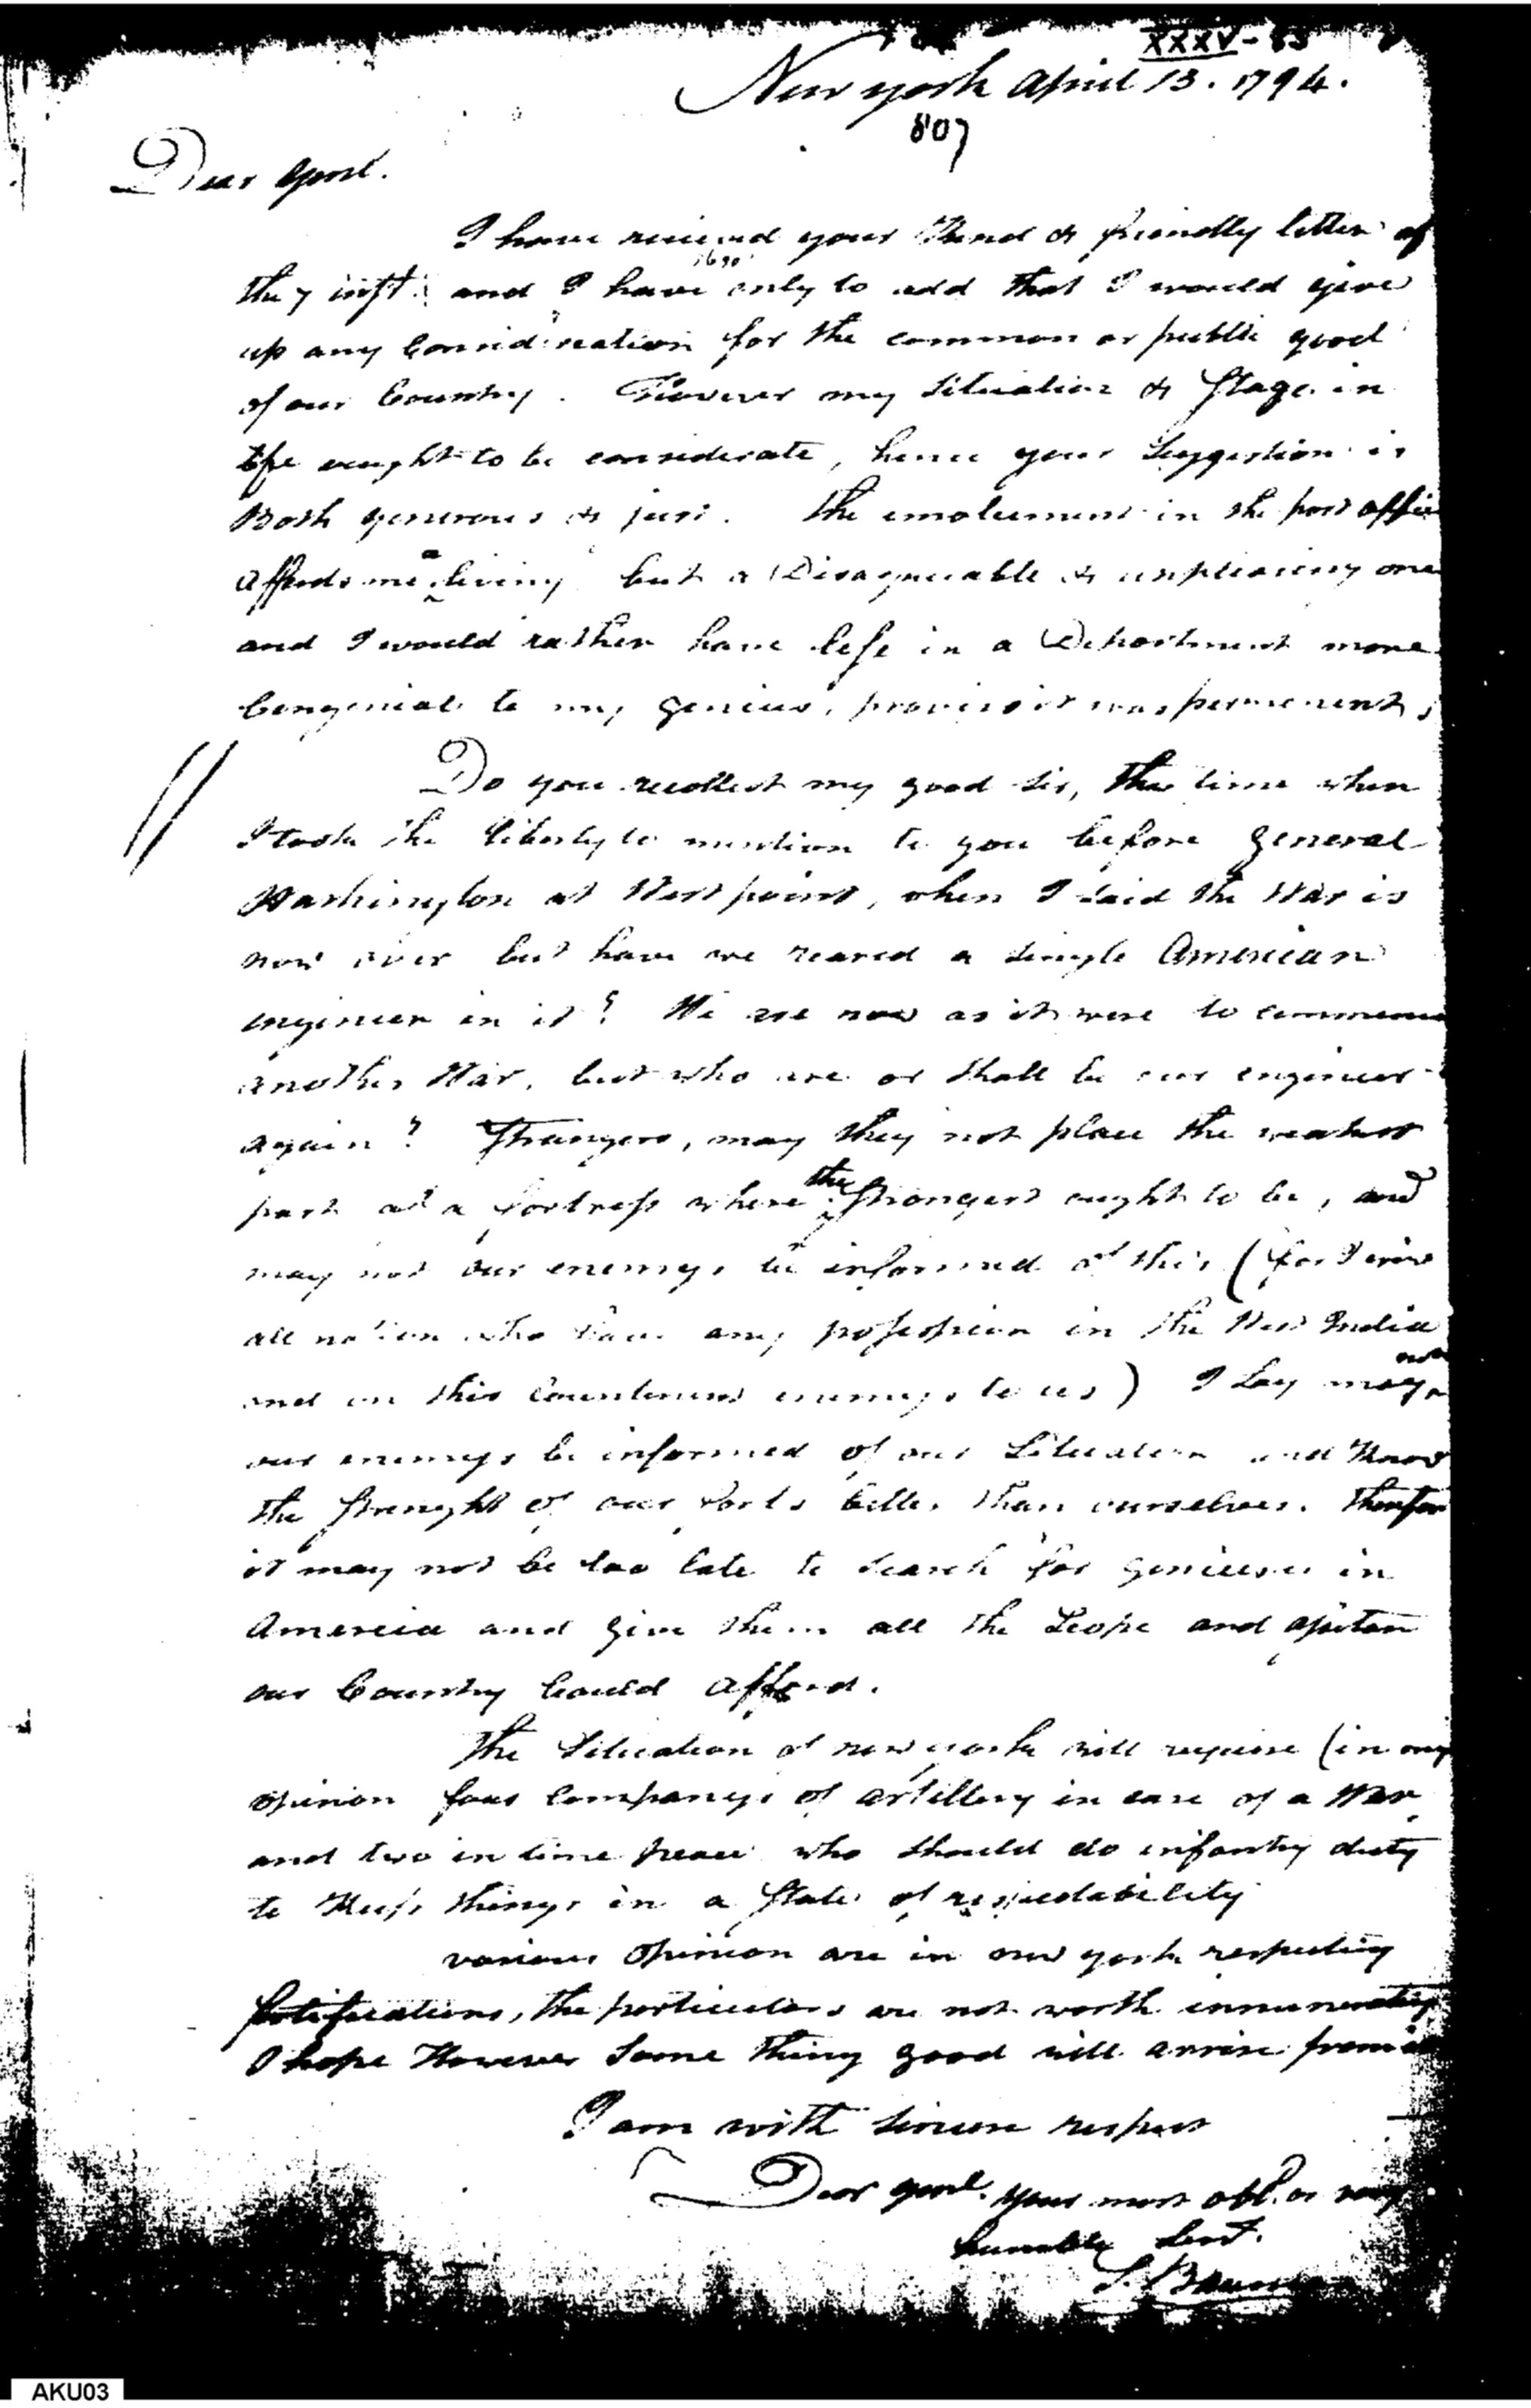 XXXV-83
New york April 13. 1794.
807
Dear Genl.
I have received your Kind & friendly letter of
the 7 inst. and I have only to add that I would give
up any Consideration for the common or public good
of our Country. However my Situation & Stage in
life ought to be considerate, hence your Suggestion is
Both generous & just. The emolument in the post office
affords me a living but a Disagreeable & unpleasing one
and I would rather have less in a Department more
Congenial to my genius, proviso it was permenent,
Do you recollect my good Sir, the time when
I took the liberty to mention to you before General
Washington at West point, when I said the War is
now over but have we reared a Single American
engineer in it? We are now as it were to commence
another War, but who are or Shall be our engineer
again? Strangers, may they not place the weakest
part of a fortress where the Strongest ought to be, and
may not our enemys be informed of this (for I
all nation who have any possession in the West India
and on this enemys to us) I Say may not
our enemys be informed of our Situation and Know
the Strenght of our forts better than ourselves. Therefore
it may not be too late to Search for geniuses in
America and give them all the Scope and
our Country Could afford.
The Situation of new york will require (in my
opinion four Companys of artillery in case of a War
and two in time peace who Should do infantry duty
to Keep things in a State of respectability
various opinion are in new york respecting
fortifications, the particulars are not worth
I hope However Some thing good will arrise from it
I am with Sincere respect
Dear genl. your most obt. & very
humble Servt.
S. Bauman
AKU03